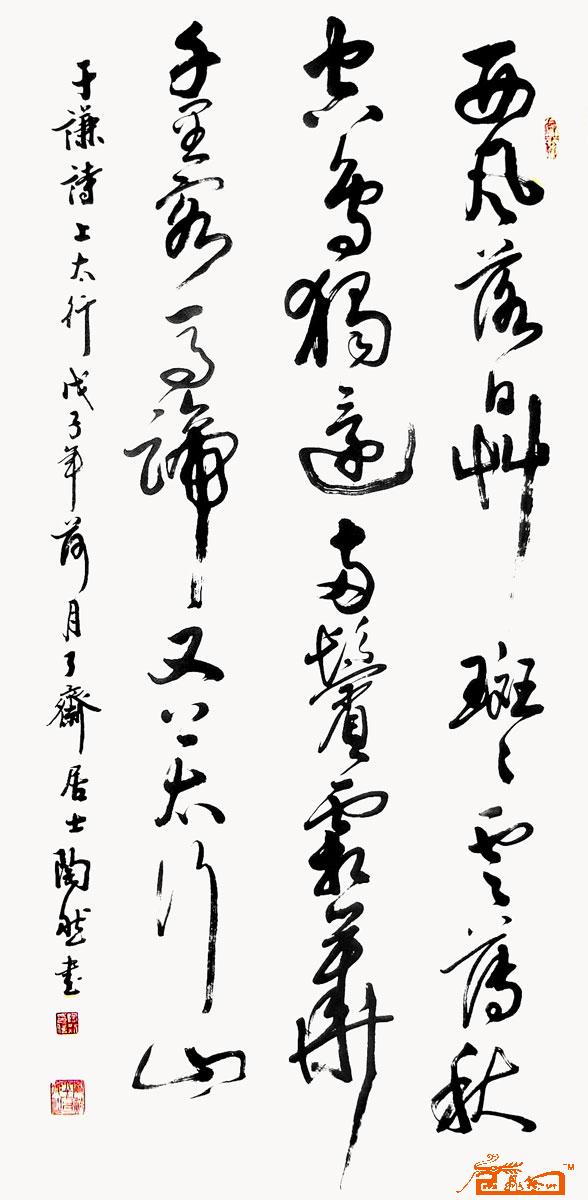 西風落日草斑〻雲薄秋
容鳥獨還兩鬢霜華
千里客馬蹄又上太行山
于謙詩上太行戊子年荷月了齋居士陶然書